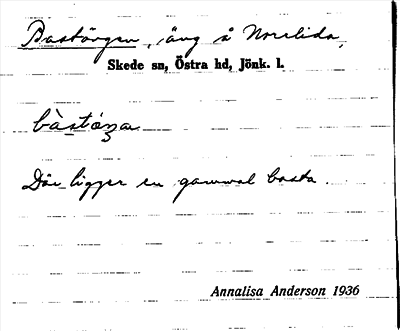 Bastängen, äng å Norrlida,
Skede sn, Östra hd, Jönk. l.
bàstæ̀ŋa
Där ligger en gammal basta.
Annalisa Anderson 1936